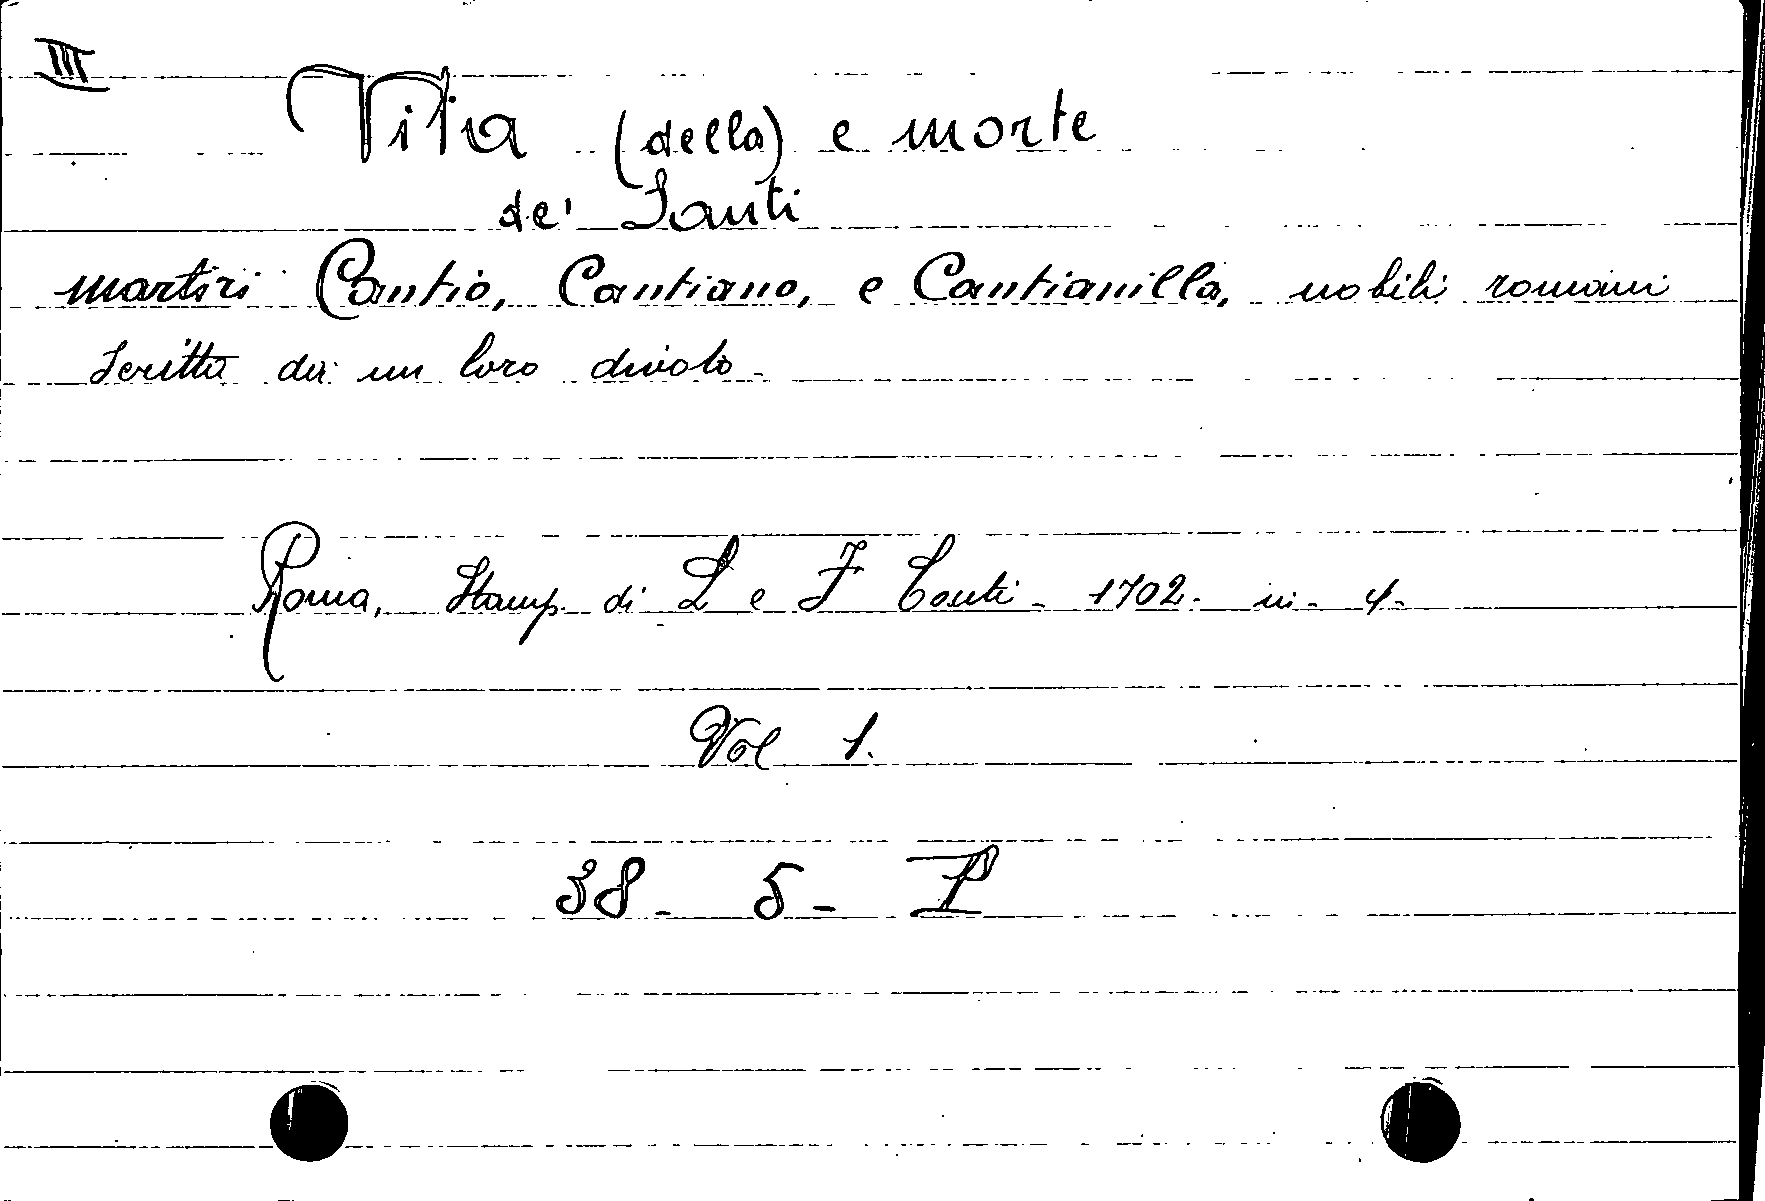 III
Vita (della) e morte
de' Santi
martiri Cantio, Cantiano, e Cantianilla, nobili romani
scritta da un loro divoto.
Roma, Stamp. di L e F Conti - 1702. in - 4.
Vol 1.
38 - 5 - P